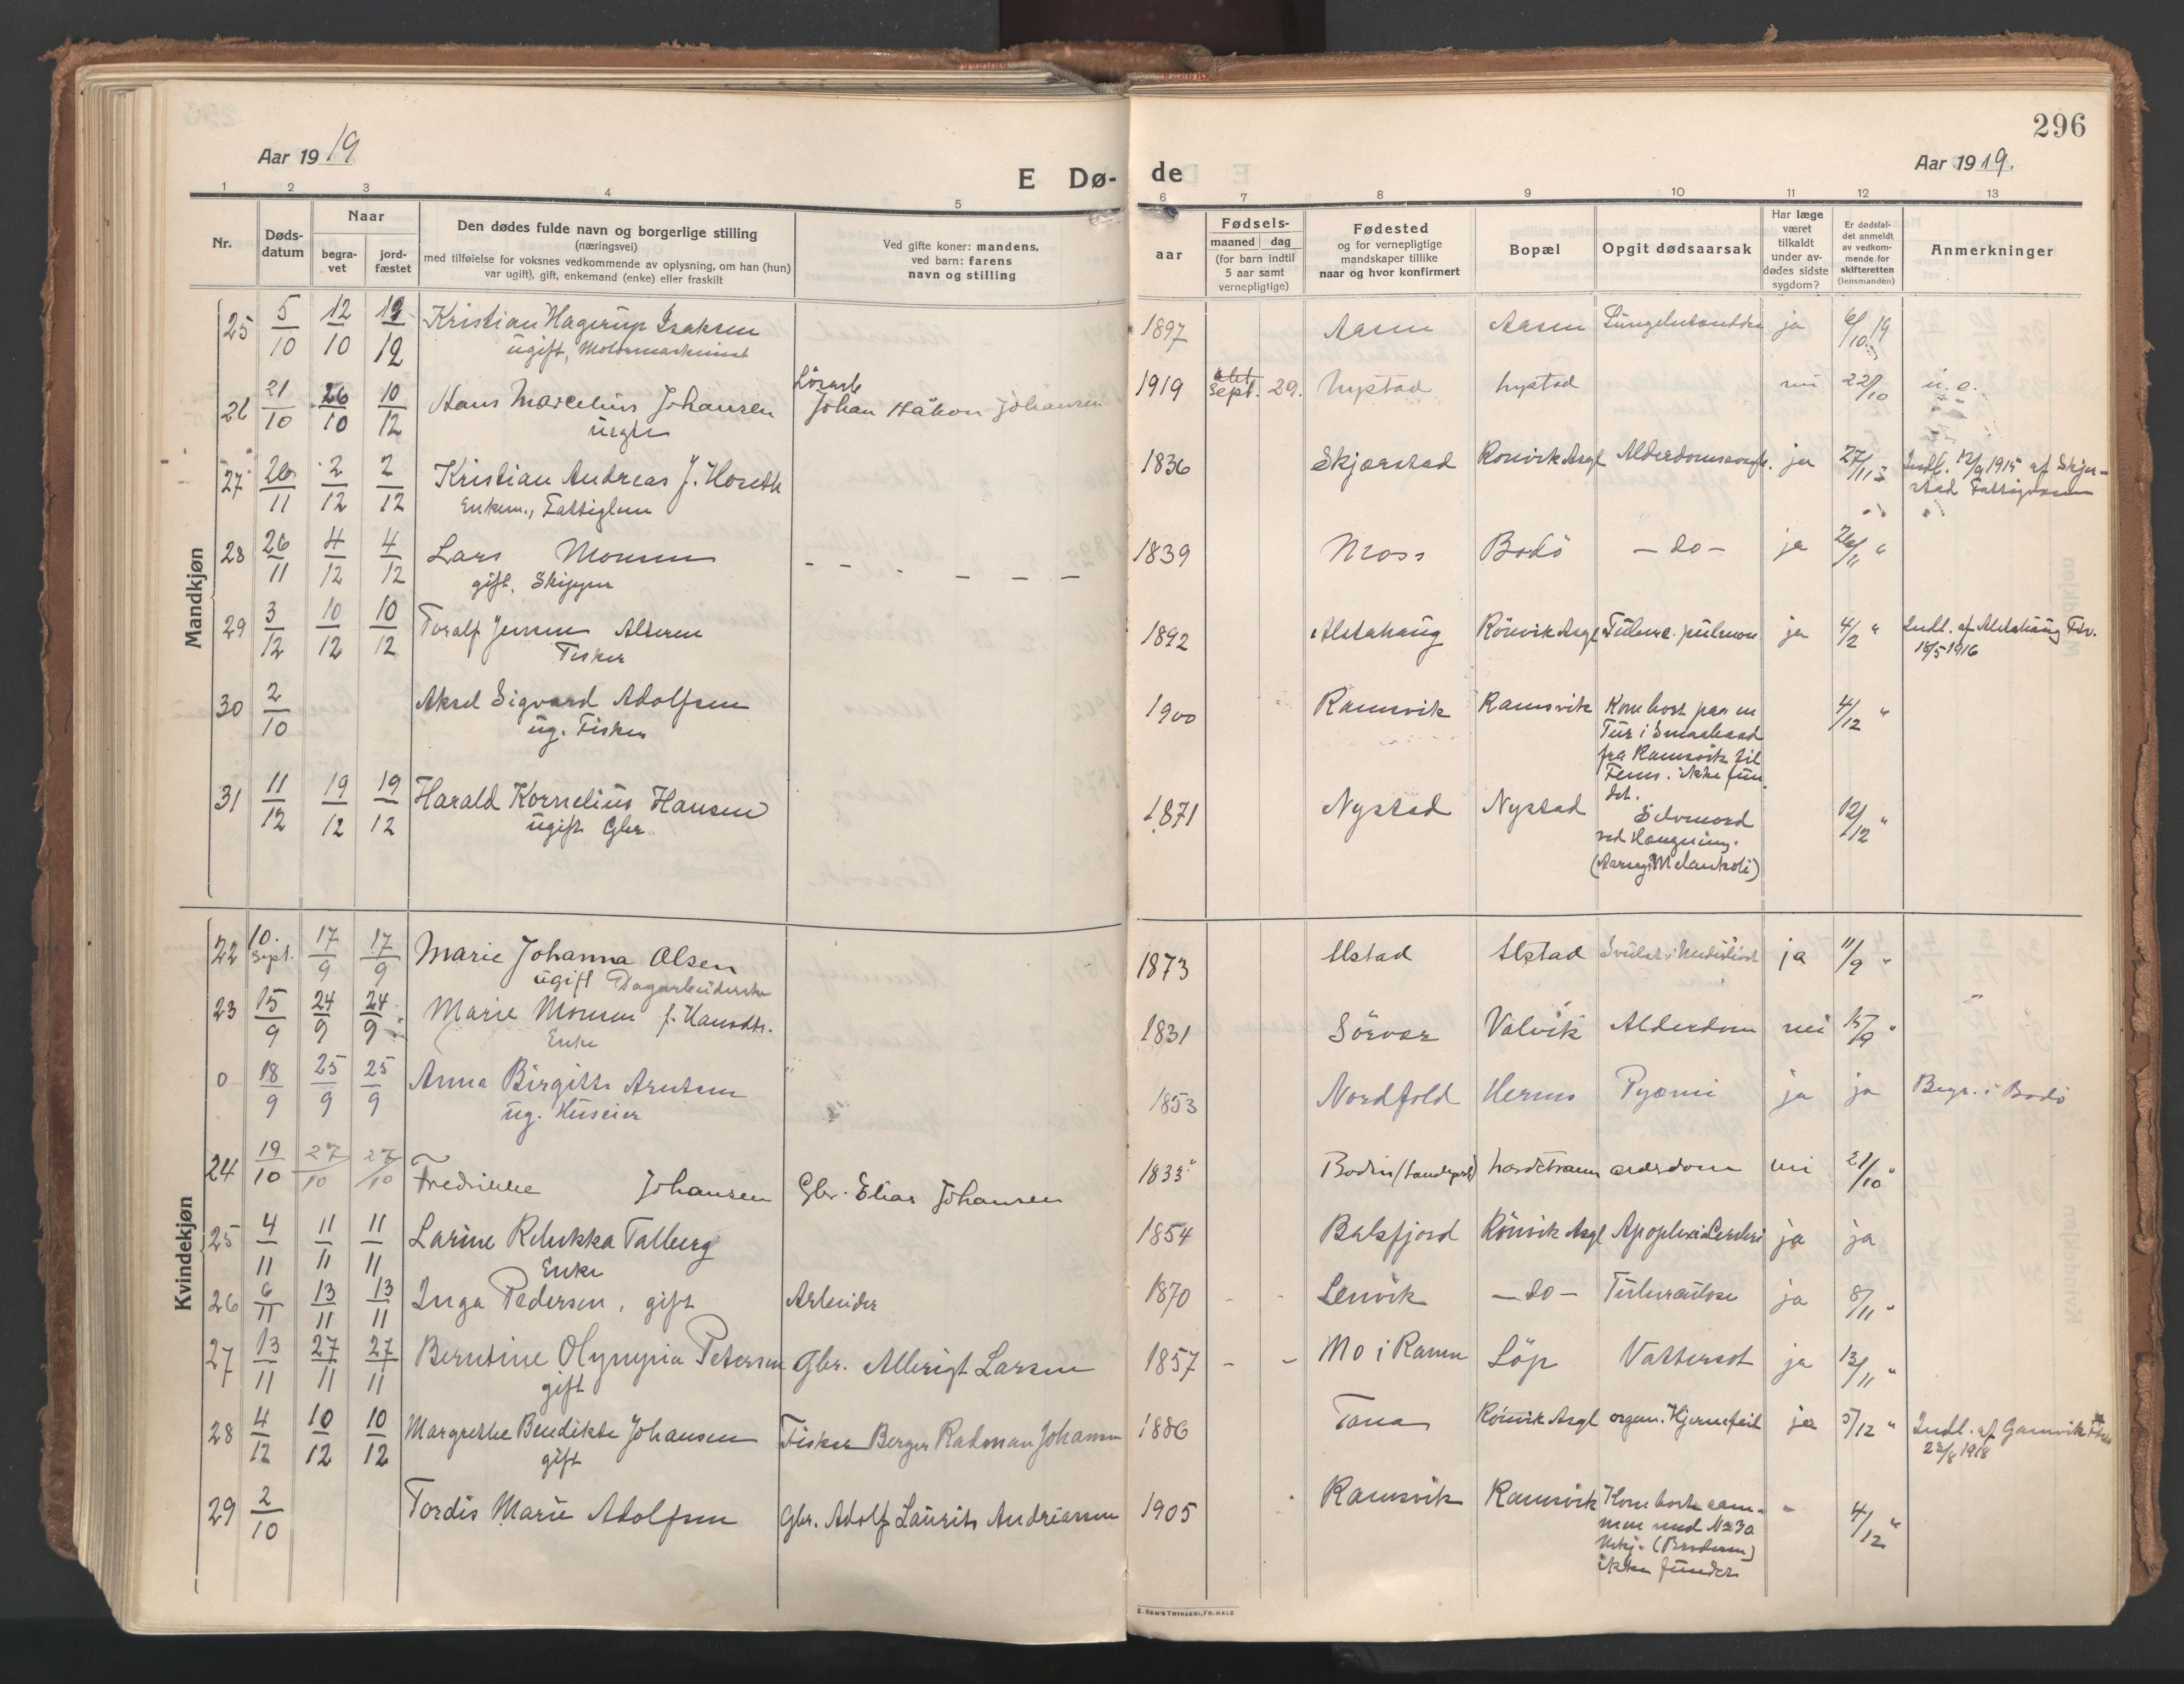 296
Aar 1919
E Dø-
de
Aar 1919.
1 2 3 4 5 6 7 8 9 10 11 12 13
Nr.
Døds-
datum
Naar
begra-
vet
jord-
fæstet
Den dødes fulde navn og borgerlige stilling
(næringsvei)
med tilføielse for voksnes vedkommende av oplysning, om han (hun)
var ugift), gift, enkemand (enke) eller fraskilt
Ved gifte koner: mandens,
ved barn: farens
navn og stilling
Fødsels-
aar
maaned dag
(for barn indtil
5 aar samt
vernepligtige)
Fødested
og for vernepligtige
mandskaper tillike
naar og hvor konfirmert
Bopæl
Opgit dødsaarsak
Har læge
været
tilkaldt
under av-
dødes sidste
sygdom?
Er dødsfal-
det anmeldt
av vedkom-
mende for
skifteretten
(lensmanden)
Anmerkninger
Mandkjøn
25 5/10 12/10 12 Kristian Hagerup Isaksen 1897 Aasen Aasen ja 6/10 19
ugift, Motormaskinist
26 21/10 26/10 10/12 Hans Marcelius Johansen Johan Håkon Johansen 1919 Sept. 29. Nystad Nystad nei 22/10
27 26/11 2/12 2/12 Kristian Andreas J. Hoseth 1836 Skjærstad Rönvik Asyl ja 27/11 Indl. 12/9 1915 af Skjer-
Enkem., Fattiglem stad Fattigvæsen
28 26/11 4/12 4/12 Lars Monsen - - - - - - 1839 Moss Bodö - do - ja 26/11 "
gift, Skipper
29 3/12 10/12 10/12 Toralf Jensen Alteren 1892 Alstahaug Rönvik Asyl Tuberc. pulmon ja 4/2 " Indl. af Alstahaug Fsv.
Fisker 18/5 1916
30 2/10 Aksel Sigvard Adolfsen 1900 Ramsvik Ramsvik Kom bort paa en 4/12 "
ug. Fisker Tur i Smaabaad
fra Ramsvik til
ikke fun
det.
31 11/12 19/12 19/12 Harald Kornelius Hansen 1871 Nystad Nystad Selvmord 12/12 "
ugift Gbr. ved Hængning.
(Aarsag: Melankoli)
Kvindekjøn
22 10. Sept. 17/9 17/9 Marie Johanna Olsen 1873 Alstad Alstad ja 11/9 "
ugift Dagarbeiderske
23 15/9 24/9 24/9 Marie Monsen f. Hansdtr. 1831 Sörvær Valvik Alderdom nei 15/9 "
Enke
0 18/9 25/9 25/9 Anna Birgitte Arntsen 1853 Nordfold Hernes Pyæmi ja ja Begr. i Bodö
ug. Huseier
24 19/10 27/10 27/10 Fredrikke Johansen Gbr. Elias Johansen 1833 Bodin alderdom nei 21/10 "
25 4/11 11/11 11/11 Larine Rebekka Talberg 1854 Balsfjord Rönvik Asyl Apoplexia Cerebri ja ja
Enke
26 6/11 13/11 13/11 Inga Pedersen, gift Arbeider 1870 - - Lenvik - do - Tuberculose ja 8/11 "
27 13/11 27/11 27/11 Berntine Olympia Petersen Gbr. Albrigt Larsen 1857 - - Mo i Ranen Löp Vattersot ja 13/11 "
gift
28 4/12 10/12 10/12 Margrethe Bendikte Johansen Fisker Berger Radman Johansen 1886 Tana Rönvik Asyl organ. Hjernefeil ja 5/12 " Indl. af Gamvik
gift 23/8 1918
29 2/10 Tordis Marie Adolfsen Gbr. Adolf Laurits Andreassen 1905 Ramsvik Ramsvik Kom bort sam- - 4/12 "
men med No 30
Mkj. (Broderen)
ikke fundet
E. SEM'S TRYKKERI, FR. HALD